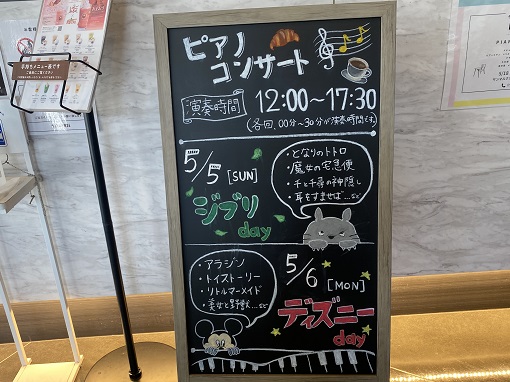 ピアノ
コンサート
演奏時間
12:00〜17:30
(各回、00分〜30分が演奏時間です。)
5/5 [SUN]
ジブリ
day
・となりのトトロ
・魔女の宅急便
・千と千尋の神隠し
・耳をすませば…など
・アラジン
・トイストーリー
・リトルマーメイド
・美女と野獣…など
5/6 [MON]
ディズニー
day